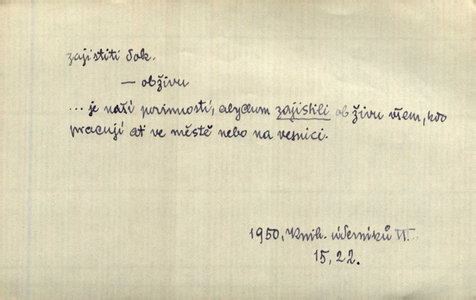 zajistiti dok.
— obživu
... je naší povinností, abychom zajistili obživu všem, kdo
pracují ať ve městě nebo na vesnici.
1950, Knih. úderníků VI.
15, 22.